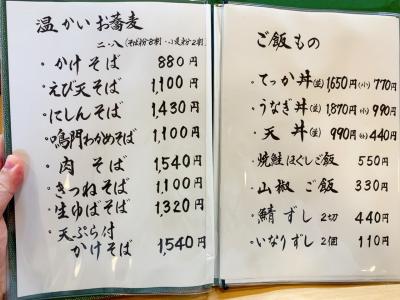 温かいお蕎麦
二・八(そば粉8割・小麦粉2割)
・かけそば 880円
・えび天そば 1,100円
・にしんそば 1,430円
・鳴門わかめそば 1,100円
・肉そば 1,540円
・きつねそば 1,100円
・生ゆばそば 1,320円
・天ぷら付
かけそば 1,540円
ご飯もの
・てっか丼(並)1,650円(小)770円
・うなぎ丼(並)1,870円(小)990円
・天丼(並)990円(小)440円
・焼鮭ほぐしご飯 550円
・山椒ご飯 330円
・鯖ずし 2切 440円
・いなりずし 2個 110円